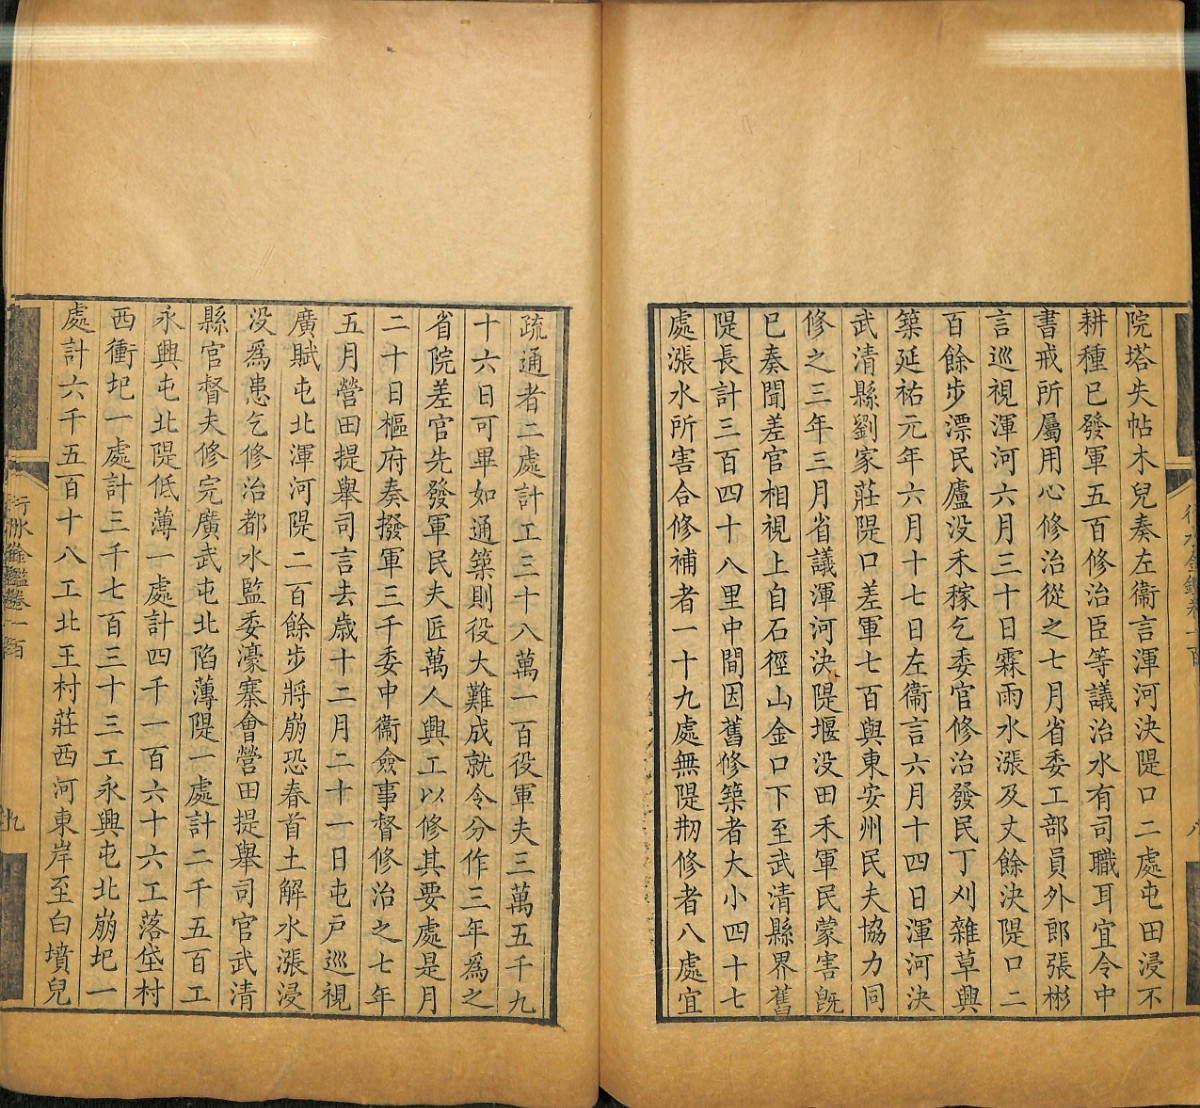 院塔失帖木兒奏左衞言渾河決隄口二處屯田浸不
耕種已發軍五百修治臣等議治水有司職耳宜令中
書戒所屬用心修治從之七月省委工部員外郎張彬
言巡視渾河六月三十日霖雨水漲及丈餘決隄口二
百餘步漂民廬没禾稼乞委官修治發民丁刈雜草興
築延祐元年六月十七日左衞言六月十四日渾河決
武清縣劉家莊隄口差軍七百與東安州民夫協力同
修之三年三月省議渾河決隄堰没田禾軍民蒙害旣
已奏聞差官相視上自石徑山金口下至武清縣界舊
隄長計三百四十八里中間因舊修築者大小四十七
處漲水所害合修補者一十九處無隄刱修者八處宜
疏通者二處計工三十八萬一百役軍夫三萬五千九
十六日可畢如通築則役大難成就令分作三年爲之
省院差官先發軍民夫匠萬人興工以修其要處是月
二十日樞府奏撥軍三千委中衞僉事督修治之七年
五月營田提舉司言去歲十二月二十一日屯戸巡視
廣賦屯北渾河隄二百餘步將崩恐春首土解水漲浸
没爲患乞修治都水監委濠寨會營田提舉司官武清
縣官督夫修完廣武屯北陷薄隄一處計二千五百工
永興屯北隄低薄一處計四千一百六十六工落垡村
西衝圯一處計三千七百三十三工永興屯北崩圯一
處計六千五百十八工北王村莊西河東岸至白墳兒
行水金鑑卷一百
九